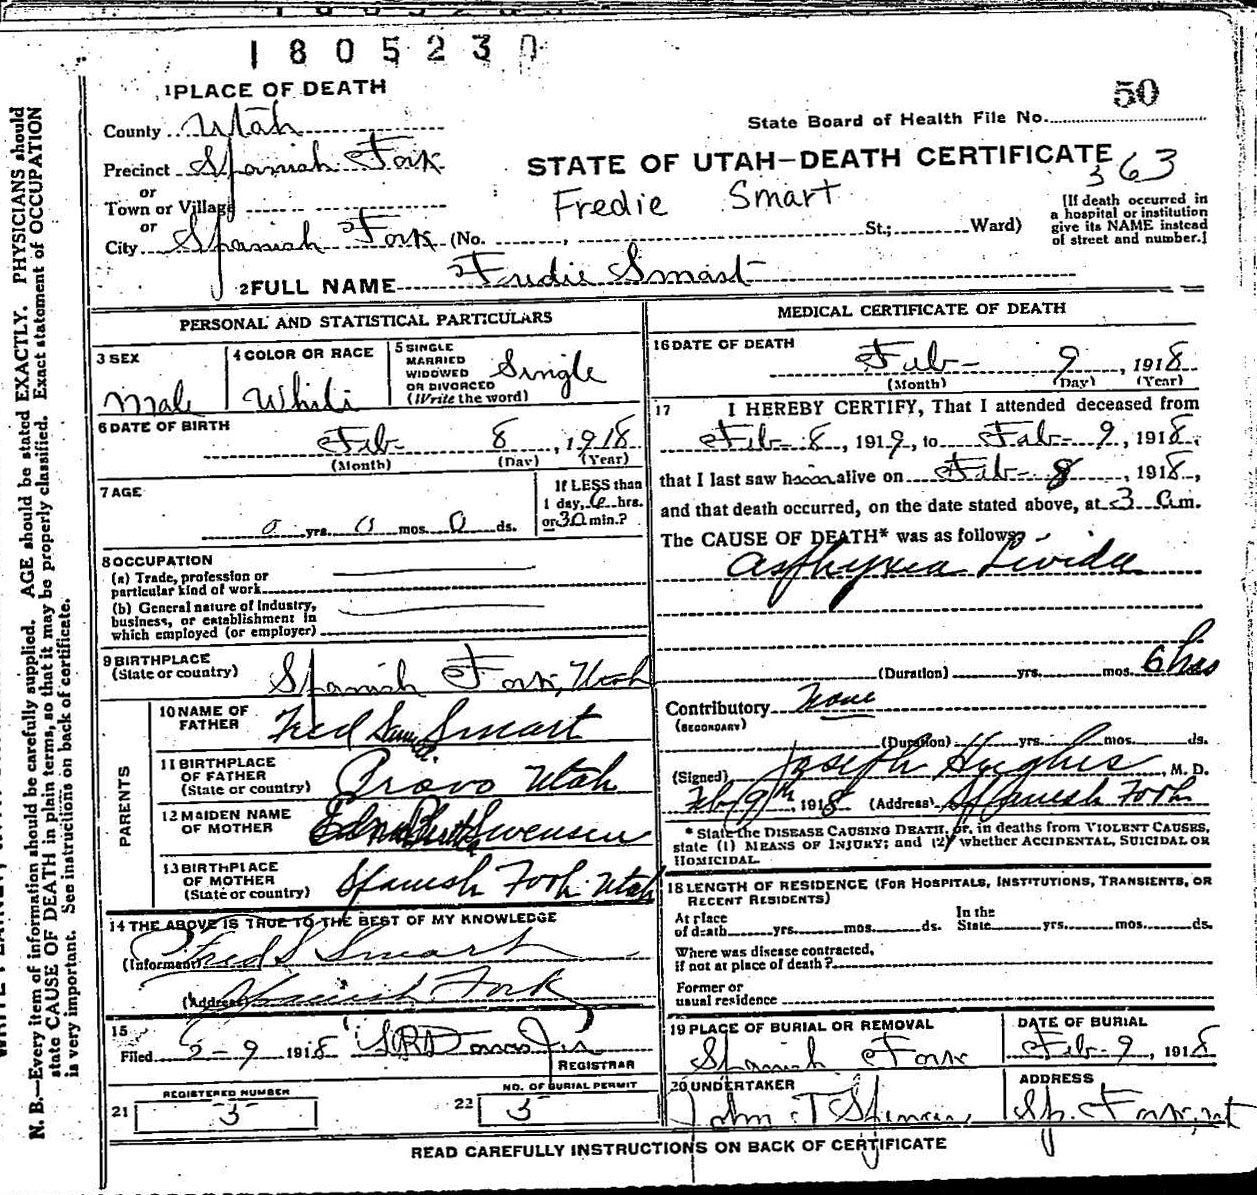 1805230
1 PLACE OF DEATH
50
County Utah
State Board of Health File No.
Precinct Spanish Fork
STATE OF UTAH-DEATH CERTIFICATE
363
or
Town or Village
Fredie Smart
[If death occurred in
a hospital or institution
give its NAME instead
of street and number.]
or
City Spanish Fork (No. , St.; Ward)
2 FULL NAME Fredie Smart
PERSONAL AND STATISTICAL PARTICULARS
3 SEX
Male
4 COLOR OR RACE
White
5 SINGLE
MARRIED
WIDOWED
OR DIVORCED
(Write the word)
Single
6 DATE OF BIRTH
Feb 8, 1918
(Month) (Day) (Year)
7 AGE
0 yrs. 0 mos. 0 ds.
If LESS than
1 day, 6 hrs.
or 30 min.?
8 OCCUPATION
(a) Trade, profession or
particular kind of work
(b) General nature of industry,
business, or establishment in
which employed (or employer)
9 BIRTHPLACE
(State or country)
Spanish Fork, Utah
PARENTS
10 NAME OF
FATHER
Fred Smart
11 BIRTHPLACE
OF FATHER
(State or country)
Provo Utah
12 MAIDEN NAME
OF MOTHER
Edna Swensen
13 BIRTHPLACE
OF MOTHER
(State or country)
Spanish Fork Utah
14 THE ABOVE IS TRUE TO THE BEST OF MY KNOWLEDGE
(Informant) Fred S Smart
(Address) Spanish Fork
15
Filed 2-9 1918
REGISTRAR
REGISTERED NUMBER
21 3
NO. OF BURIAL PERMIT
22 3
MEDICAL CERTIFICATE OF DEATH
16 DATE OF DEATH
Feb 9, 1918
(Month) (Day) (Year)
17 I HEREBY CERTIFY, That I attended deceased from
Feb 8, 1919, to Feb 9, 1918,
that I last saw him alive on Feb 8, 1918,
and that death occurred, on the date stated above, at 3 am.
The CAUSE OF DEATH* was as follows:
Asphyxia Livida
(Duration) yrs. mos. 6 hrs
Contributory None
(SECONDARY)
(Duration) yrs. mos. ds.
(Signed) Joseph Hughes, M. D.
Feb 9th 1918 (Address) Spanish Fork
* State the DISEASE CAUSING DEATH, or, in deaths from VIOLENT CAUSES,
state (1) MEANS OF INJURY; and (2) whether ACCIDENTAL, SUICIDAL OR
HOMICIDAL.
18 LENGTH OF RESIDENCE (FOR HOSPITALS, INSTITUTIONS, TRANSIENTS, OR
RECENT RESIDENTS)
At place
of death yrs. mos. ds.
In the
State yrs. mos. ds.
Where was disease contracted,
if not at place of death?
Former or
usual residence
19 PLACE OF BURIAL OR REMOVAL
Spanish Fork
DATE OF BURIAL
Feb 9, 1918
20 UNDERTAKER
John T
ADDRESS
Sp. Fork, ut
READ CAREFULLY INSTRUCTIONS ON BACK OF CERTIFICATE
N. B.—Every item of information should be carefully supplied. AGE should be stated EXACTLY. PHYSICIANS should
state CAUSE OF DEATH in plain terms, so that it may be properly classified. Exact statement of OCCUPATION
is very important. See instructions on back of certificate.